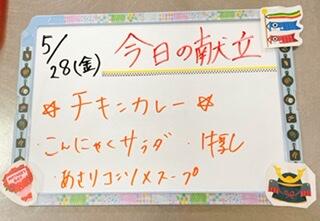 5/28(金) 今日の献立
☆ チキンカレー ☆
・こんにゃくサラダ ・牛乳
・あさりコンソメスープ